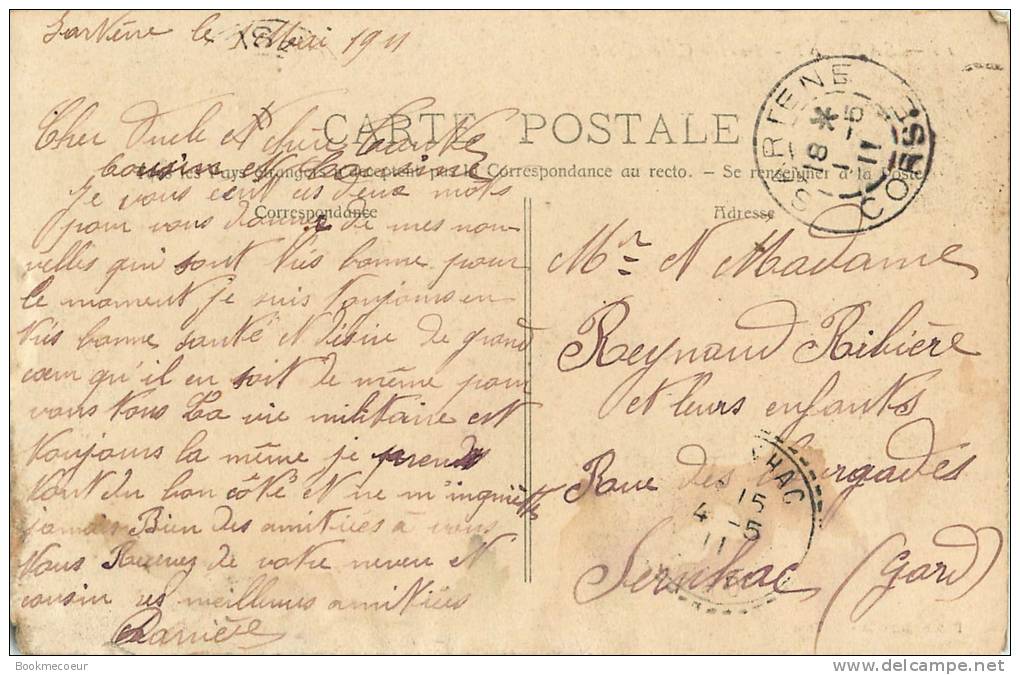 Sartène le 1 Mai 1911
CARTE POSTALE
Tous les Pays étrangers n'acceptent pas la Correspondance au recto. - Se renseigner à la Poste
Correspondance
Cher Oncle et chère tante
cousin et cousine
Je vous écrit ces deux mots
pour vous donner de mes nou-
velles qui sont très bonne pour
le moment je suis toujours en
très bonne santé et désire de grand
cœur qu'il en soit de même pour
vous tous La vie militaire est
toujours la même je prends
tout du bon côté et ne m'inquiète
jamais Bien des amitiés à vous
tous Recevez de votre neveu et
cousin ses meilleures amitiés
Adresse
Mr et Madame
Reynaud Ribière
et leurs enfants
Rue des Bourgades
Sernhac (Gard)
SARTENE CORSE
18 * 1 -5 11
HAC
15
4 -5
11
Bookmecoeur
delcampe.net